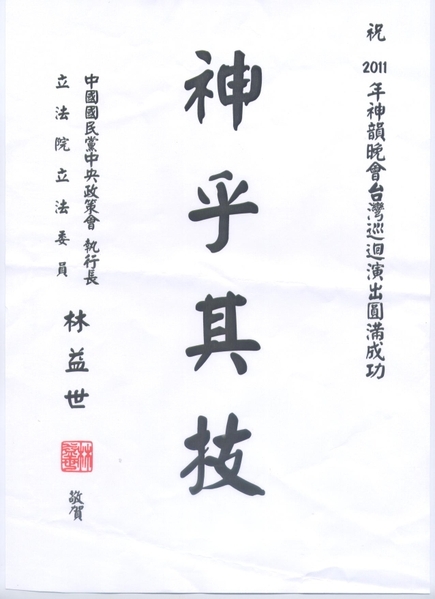 祝 2011年神韻晚會台灣巡迴演出圓滿成功
神乎其技
中國國民黨中央政策會 執行長
立法院立法委員
林益世
林益世
敬賀